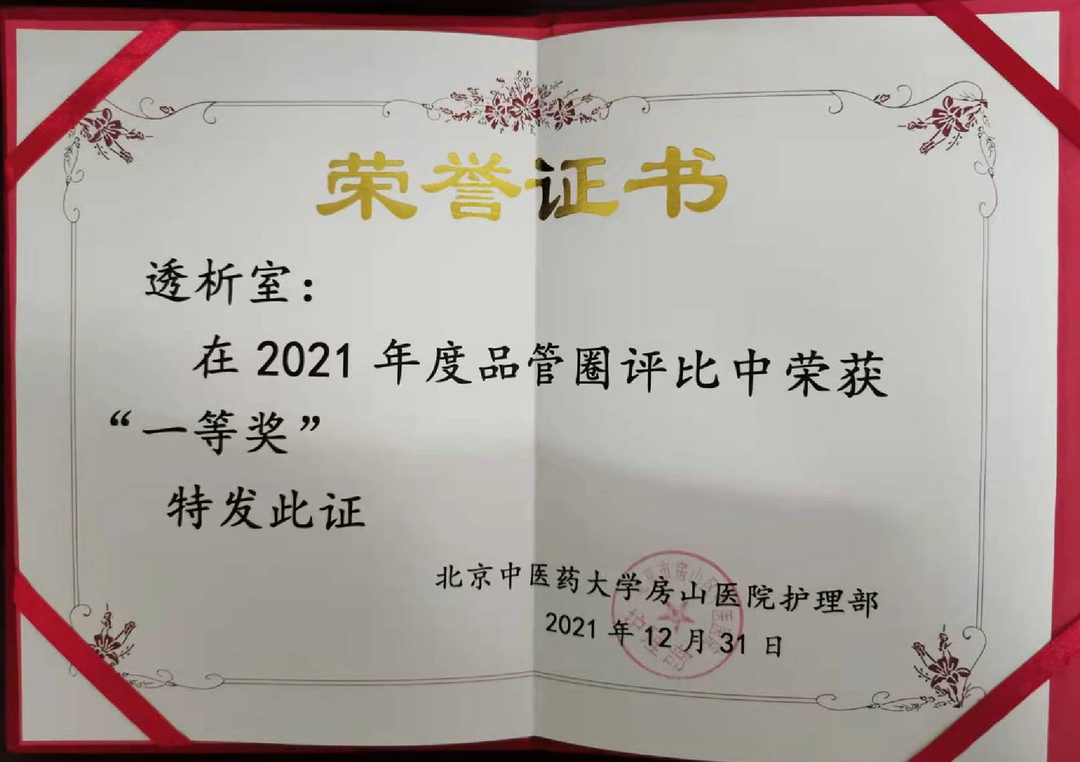 荣誉证书
透析室：
在 2021 年度品管圈评比中荣获
“一等奖”
特发此证
北京中医药大学房山医院护理部
2021 年 12 月 31 日
护理部